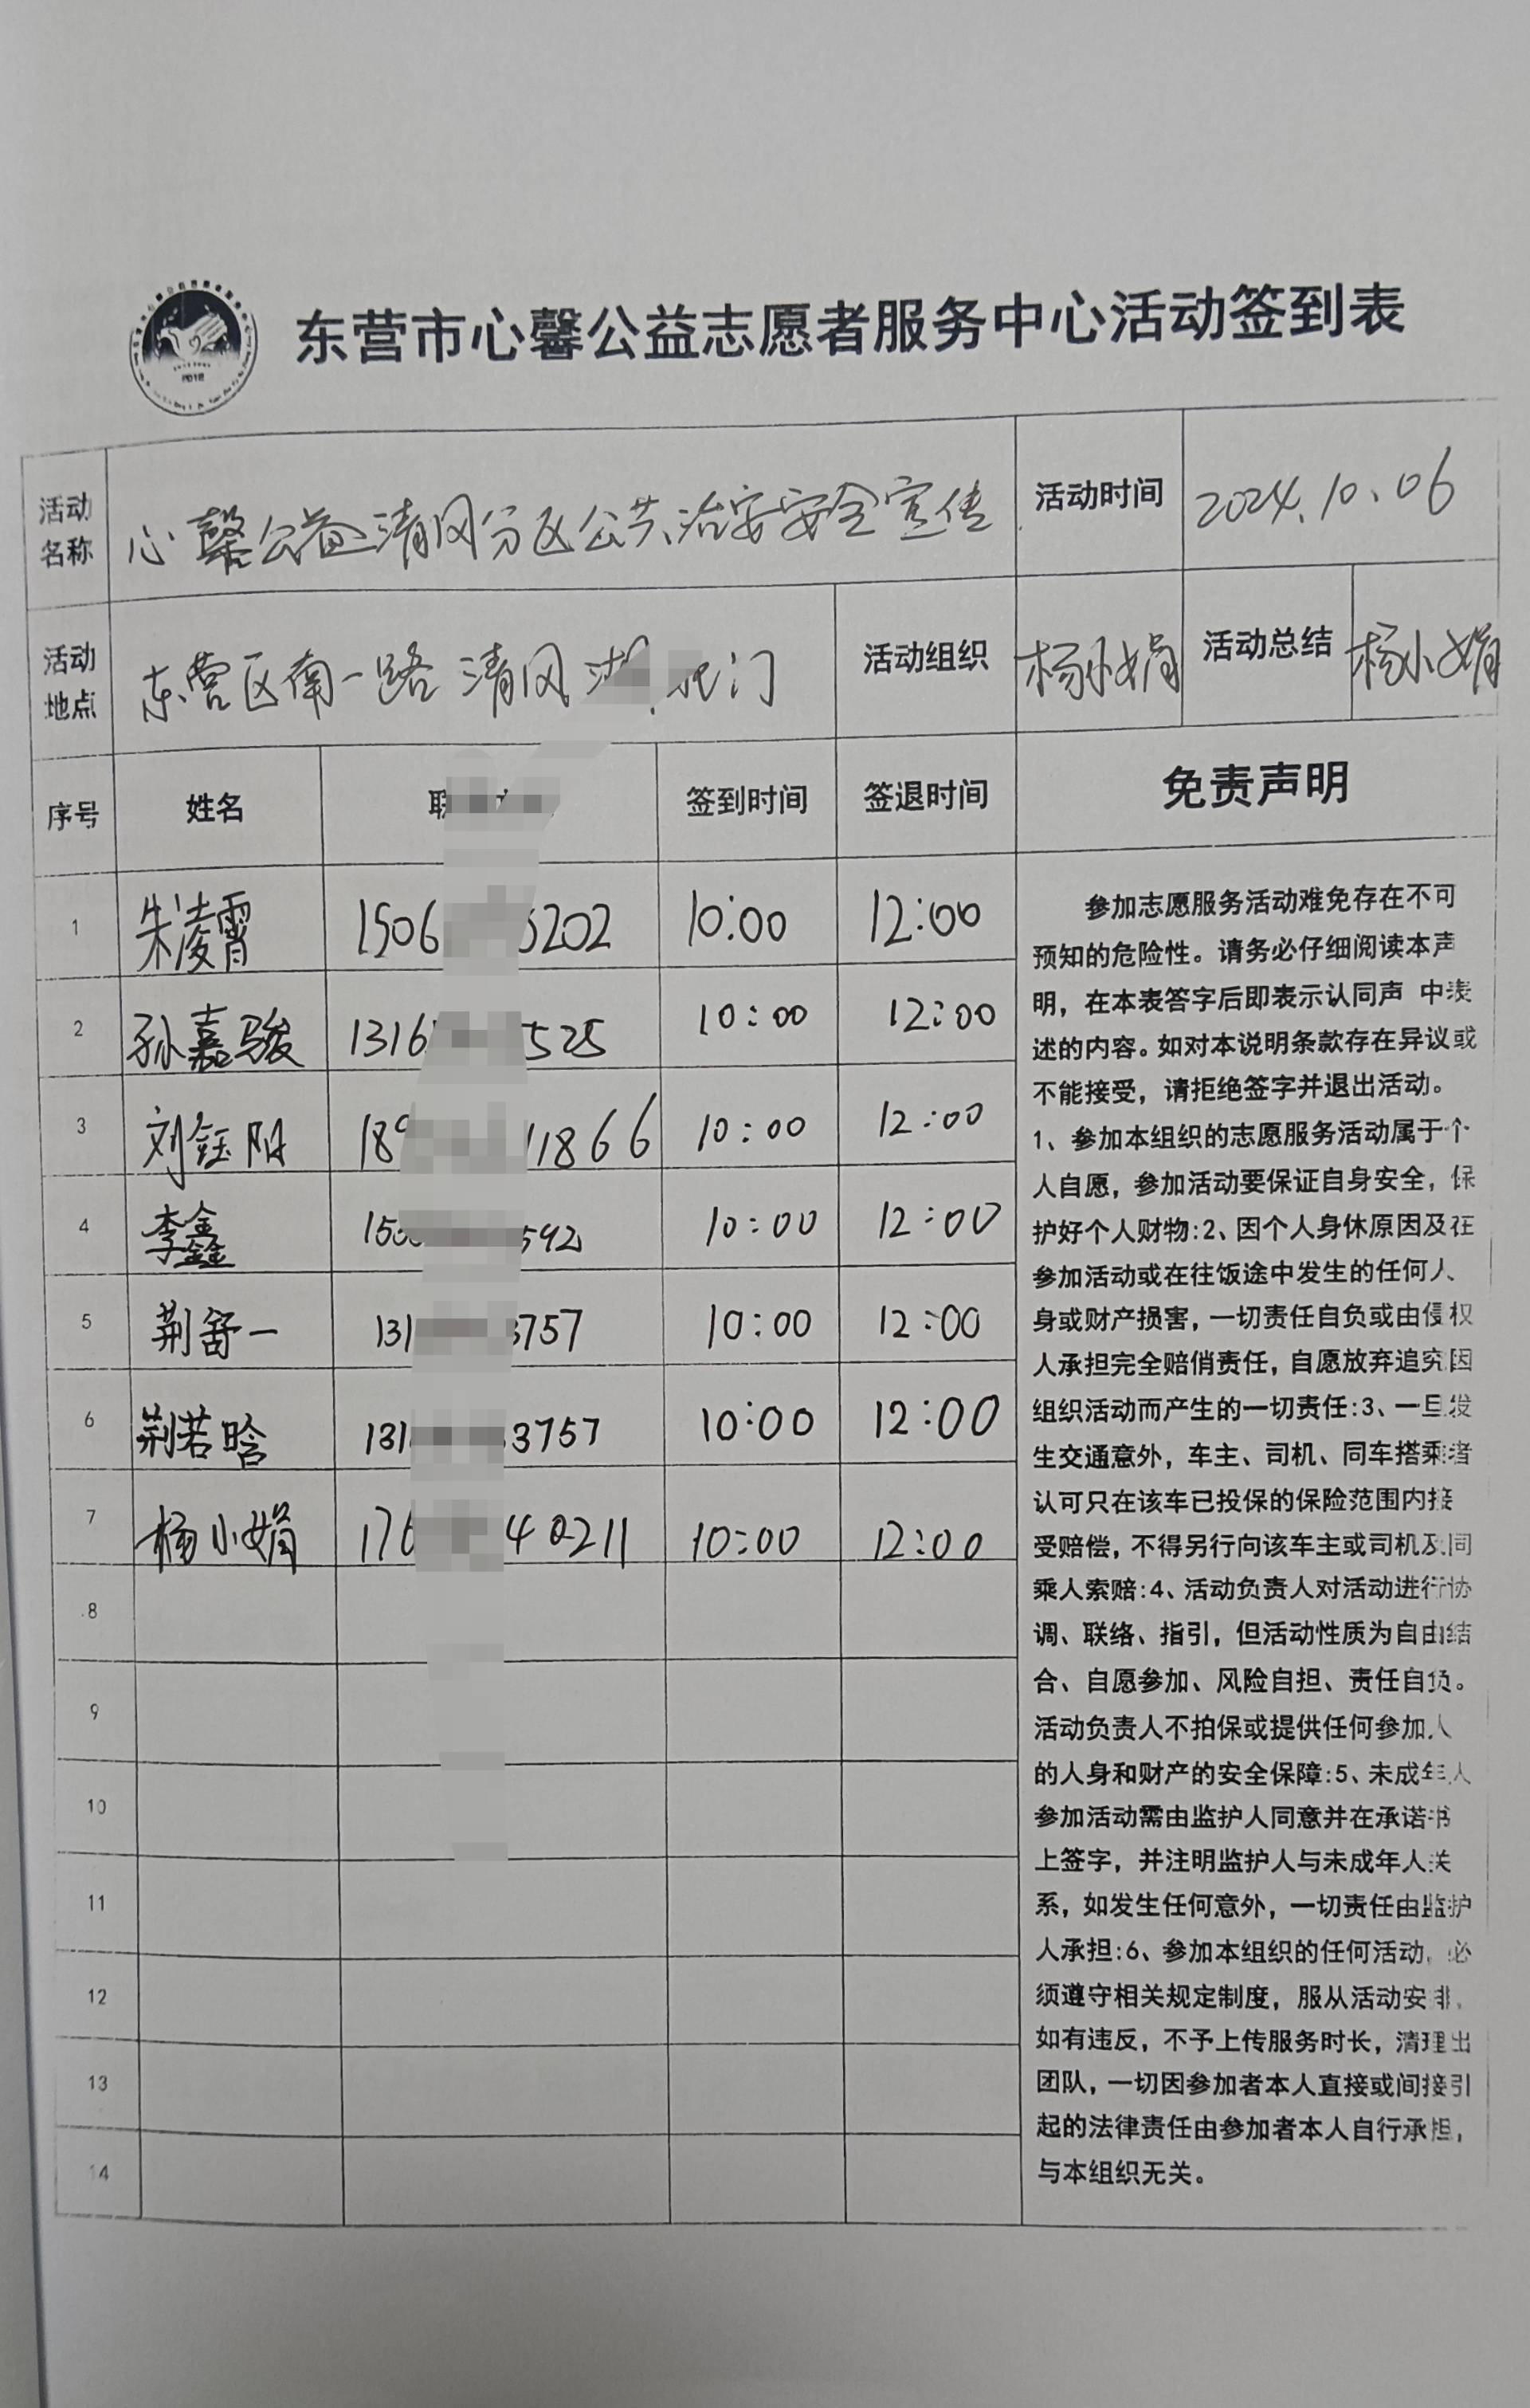 东营市心馨公益志愿者服务中心活动签到表
2018
活动名称 心馨公益清风分区公共治安安全宣传 活动时间 2024.10.06
活动地点 东营区南一路 清风湖 北门 活动组织 杨小娟 活动总结 杨小娟
序号 姓名 联 签到时间 签退时间 免责声明
1 朱凌霄 1506 5202 10:00 12:00
2 孙嘉骏 1316 525 10:00 12:00
3 刘钰阳 189 11866 10:00 12:00
4 李鑫 155 592 10:00 12:00
5 荆舒一 131 3757 10:00 12:00
6 荆若晗 131 3757 10:00 12:00
7 杨小娟 176 40211 10:00 12:00
8
9
10
11
12
13
14
参加志愿服务活动难免存在不可
预知的危险性。请务必仔细阅读本声
明，在本表答字后即表示认同声 中表
述的内容。如对本说明条款存在异议或
不能接受，请拒绝签字并退出活动。
1、参加本组织的志愿服务活动属于个
人自愿，参加活动要保证自身安全，保
护好个人财物:2、因个人身休原因及在
参加活动或在往饭途中发生的任何人
身或财产损害，一切责任自负或由侵权
人承担完全赔俏责任，自愿放弃追究因
组织活动而产生的一切责任:3、一旦发
生交通意外，车主、司机、同车搭乘者
认可只在该车已投保的保险范围内接
受赔偿，不得另行向该车主或司机及同
乘人索赔:4、活动负责人对活动进行协
调、联络、指引，但活动性质为自由结
合、自愿参加、风险自担、责任自负。
活动负责人不拍保或提供任何参加人
的人身和财产的安全保障:5、未成年人
参加活动需由监护人同意并在承诺书
上签字，并注明监护人与未成年人关
系，如发生任何意外，一切责任由监护
人承担:6、参加本组织的任何活动，必
须遵守相关规定制度，服从活动安排，
如有违反，不予上传服务时长，清理出
团队，一切因参加者本人直接或间接引
起的法律责任由参加者本人自行承担，
与本组织无关。